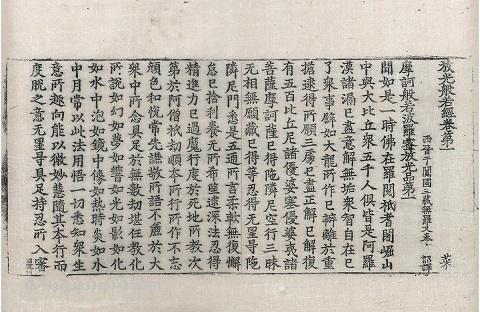 放光般若經卷第一
西晉于闐國三藏無羅叉奉 詔譯
菜
摩訶般若波羅蜜放光品第一
聞如是一時佛在羅閱祇耆闍崛山
中與大比丘衆五千人俱皆是阿羅
漢諸漏已盡意解無垢衆智自在已
了衆事譬如大龍所作已辦離於重
擔逮得所願三處已盡正解已解復
有五百比丘尼諸優婆塞優婆夷諸
菩薩摩訶薩已得陁隣尼空行三昧
无相無願藏已得等忍得无罣㝵陁
隣尼門悉是五通所言柔軟無復懈
怠已捨利養无所希望逮深法忍得
精進力已過魔行度於死地所教次
第於阿僧祇劫順本所行所作不忘
顏色和恱常先謙敬所語不麁於大
衆中所念具足於無數劫堪任教化
所說如幻如夢如響如光如影如化
如水中泡如鏡中像如熱時炎如水
中月常以此法用悟一切悉知衆生
意所趣向能以微妙慧隨其本行而
度脫之意无罣㝵具足持忍所入審